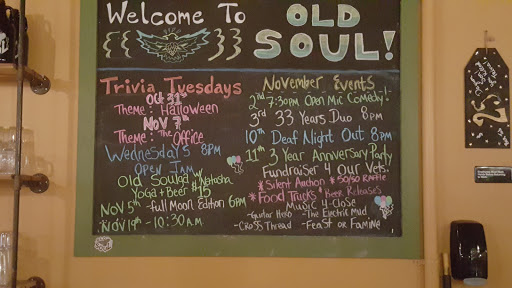 Welcome To OLD SOUL!
Trivia Tuesdays
Oct 31st
Theme: Halloween
Nov 7th
Theme: The Office
Wednesdays 8PM
Open Jam
Old Souled w/ Natasha
Yoga + Beer $15
Nov 5th - Full Moon Edition 6pm
Nov 19th - 10:30 A.M.
November Events
2nd 7:30pm Open Mic Comedy!
3rd 33 Years Duo 8pm
10th Deaf Night Out 8pm
11th 3 Year Anniversary Party
Fundraiser 4 Our Vets
* Silent Auction * 50/50 Raffle
* Food Trucks * Beer Releases
Music 4-Close
-Guitar Hero -The Electric Mud
-Cross Thread -Feast or Famine
25